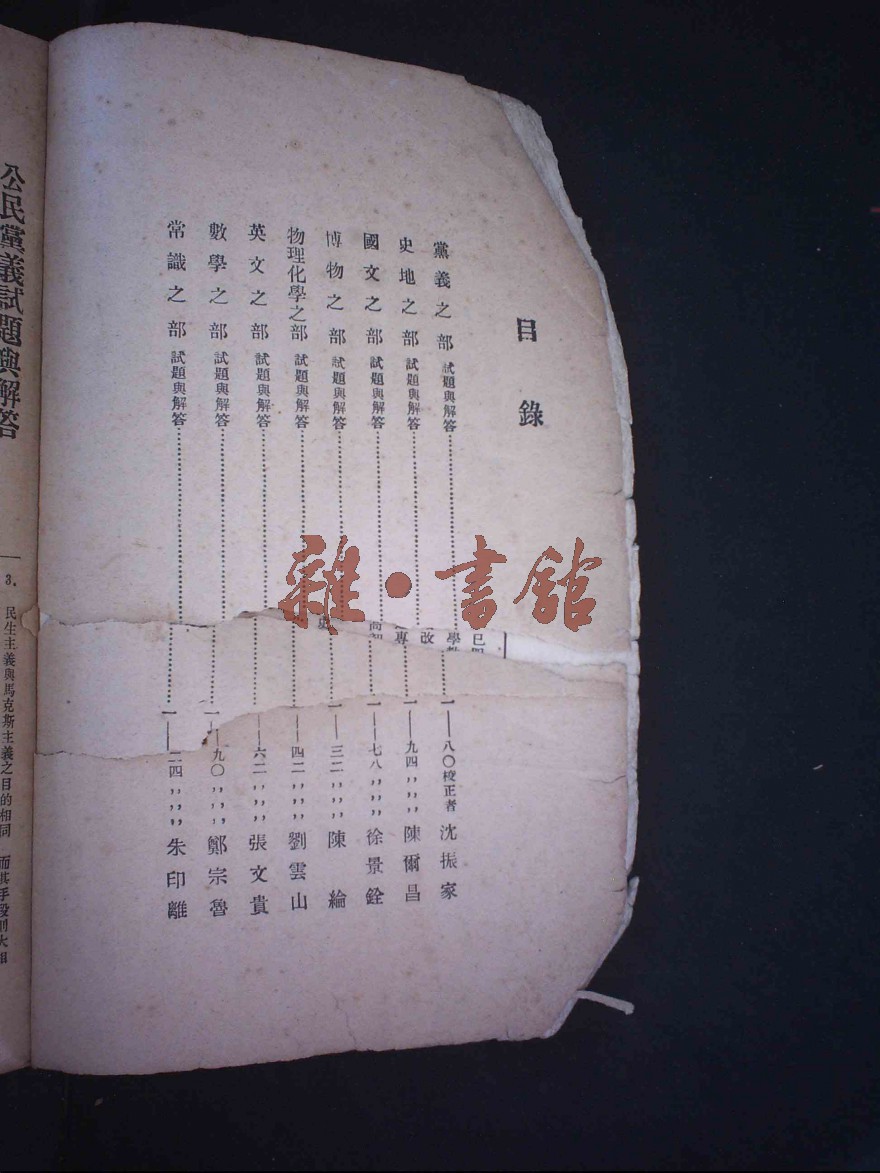 目錄
黨義之部 試題與解答………………一——八〇校正者 沈振家
史地之部 試題與解答………………一——九四,,,, 陳爾昌
國文之部 試題與解答………………一——七八,,,, 徐景銓
博物之部 試題與解答………………一——三二,,,, 陳綸
物理化學之部 試題與解答………………一——四二,,,, 劉雲山
英文之部 試題與解答………………一——六二,,,, 張文貴
數學之部 試題與解答………………一——九〇,,,, 鄭宗魯
常識之部 試題與解答………………一——二四,,,, 朱印離
學
改
專
公民黨義試題與解答
3. 民生主義與馬克斯主義之目的相同 而其手段則大相
雜·書館